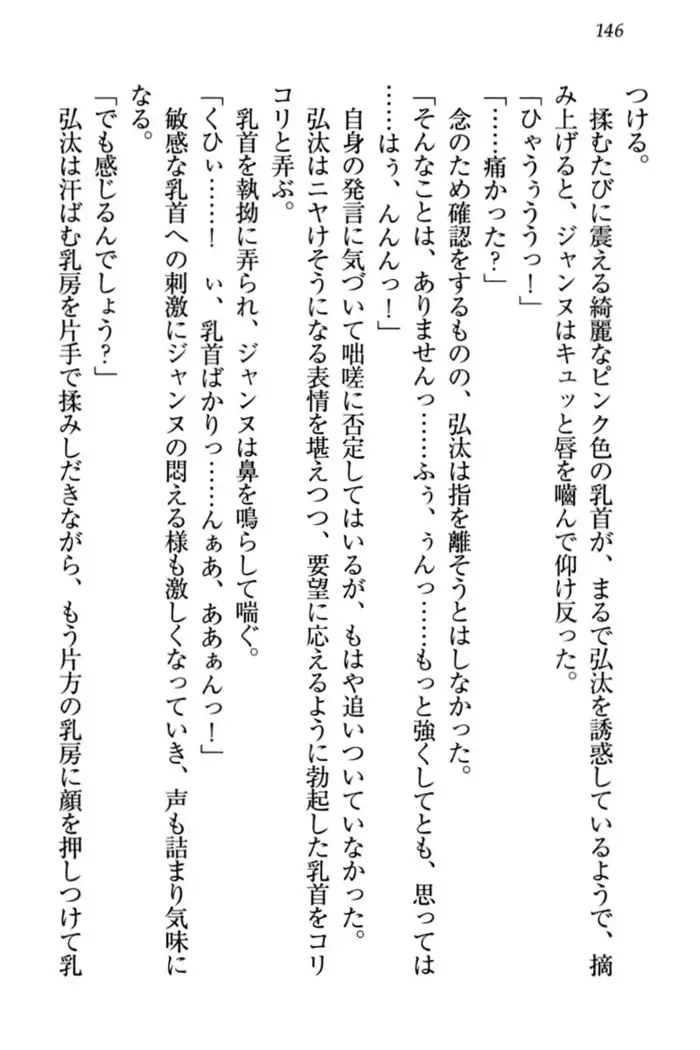 146
つける。
　揉むたびに震える綺麗なピンク色の乳首が、まるで弘汰を誘惑しているようで、摘
み上げると、ジャンヌはキュッと唇を噛んで仰け反った。
「ひゃうぅううっ！」
「……痛かった？」
　念のため確認をするものの、弘汰は指を離そうとはしなかった。
「そんなことは、ありませんっ……ふぅ、ぅんっ……もっと強くしてとも、思っては
……はぅ、んんんっ！」
　自身の発言に気づいて咄嗟に否定してはいるが、もはや追いついていなかった。
　弘汰はニヤけそうになる表情を堪えつつ、要望に応えるように勃起した乳首をコリ
コリと弄ぶ。
　乳首を執拗に弄られ、ジャンヌは鼻を鳴らして喘ぐ。
「くひぃ……！　ぃ、乳首ばかりっ……んぁあ、ああぁんっ！」
　敏感な乳首への刺激にジャンヌの悶える様も激しくなっていき、声も詰まり気味に
なる。
「でも感じるんでしょう？」
　弘汰は汗ばむ乳房を片手で揉みしだきながら、もう片方の乳房に顔を押しつけて乳